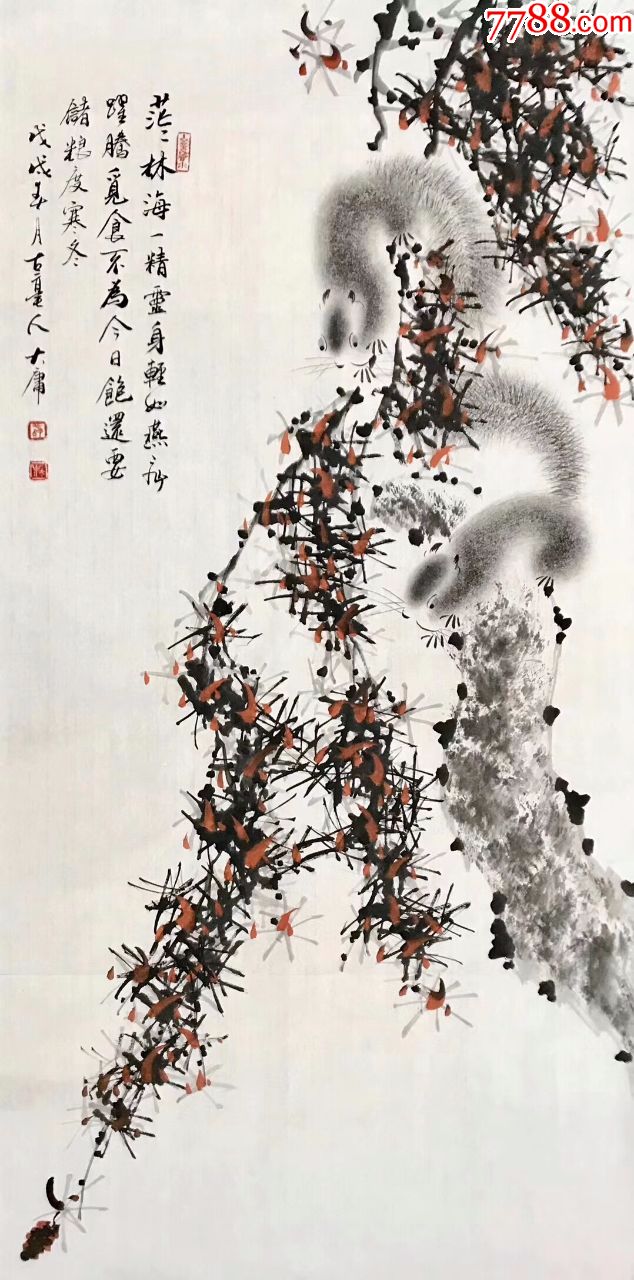 茫〻林海一精靈身輕如燕
躍騰覓食不為今日飽還要
儲粮度寒冬
戊戌春月古臺人大庸
7788.com